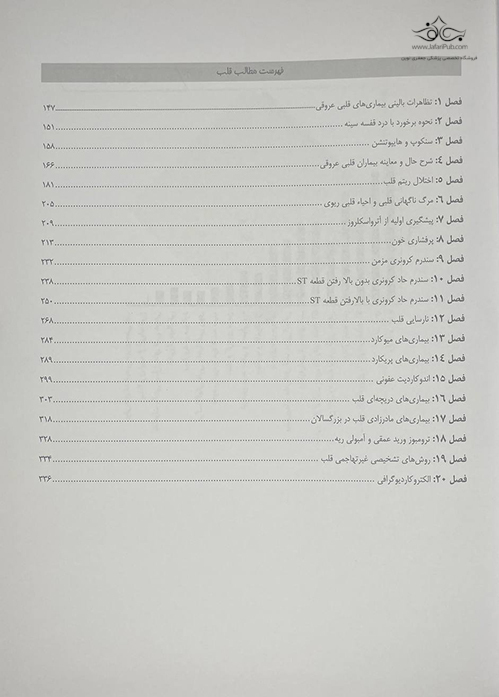 www.JafariPub.com
فروشگاه تخصصی پزشکی جعفری نوین
فهرست مطالب قلب
فصل ۱: تظاهرات بالینی بیماری‌های قلبی عروقی ۱۴۷
فصل ۲: نحوه برخورد با درد قفسه سینه ۱۵۱
فصل ۳: سنکوپ و هایپوتنشن ۱۵۸
فصل ۴: شرح حال و معاینه بیماران قلبی عروقی ۱۶۶
فصل ۵: اختلال ریتم قلب ۱۸۱
فصل ۶: مرگ ناگهانی قلبی و احیاء قلبی ریوی ۲۰۵
فصل ۷: پیشگیری اولیه از آترواسکلروز ۲۰۹
فصل ۸: پرفشاری خون ۲۱۳
فصل ۹: سندرم کرونری مزمن ۲۳۲
فصل ۱۰: سندرم حاد کرونری بدون بالا رفتن قطعه ST ۲۳۸
فصل ۱۱: سندرم حاد کرونری با بالارفتن قطعه ST ۲۵۰
فصل ۱۲: نارسایی قلب ۲۶۸
فصل ۱۳: بیماری‌های میوکارد ۲۸۴
فصل ۱۴: بیماری‌های پریکارد ۲۸۹
فصل ۱۵: اندوکاردیت عفونی ۲۹۹
فصل ۱۶: بیماری‌های دریچه‌ای قلب ۳۰۳
فصل ۱۷: بیماری‌های مادرزادی قلب در بزرگسالان ۳۱۸
فصل ۱۸: ترومبوز ورید عمقی و آمبولی ریه ۳۲۸
فصل ۱۹: روش‌های تشخیصی غیرتهاجمی قلب ۳۳۴
فصل ۲۰: الکتروکاردیوگرافی ۳۳۶